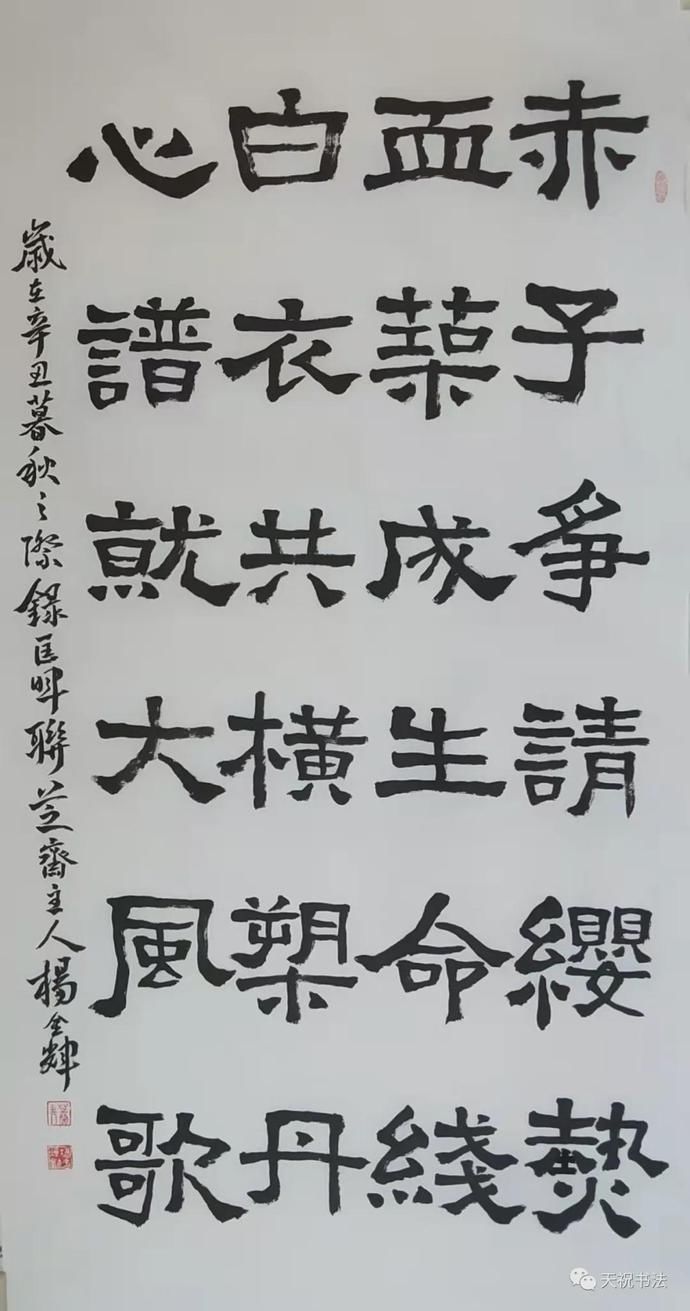 赤子爭請纓熱
血築成生命綫
白衣共橫槊丹
心譜就大風歌
歲在辛丑暮秋之際錄匡暉聯芝齋主人楊全輝
天祝书法